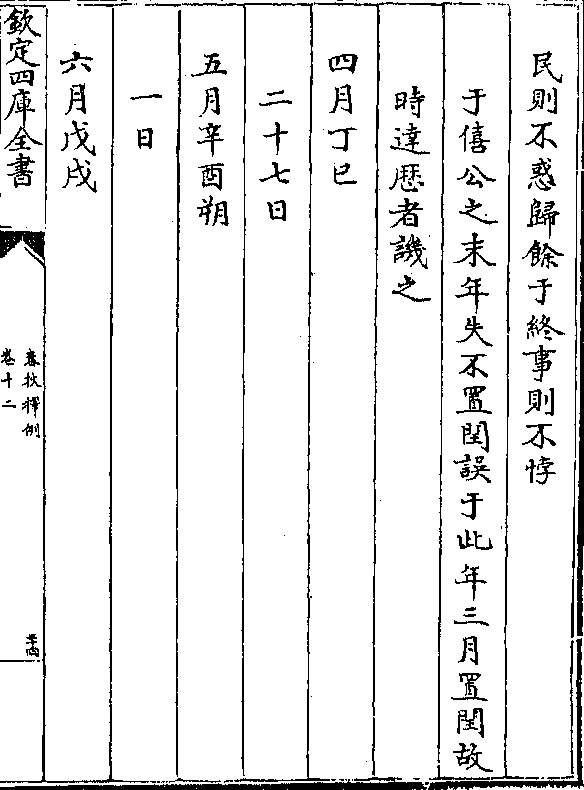 民則不惑歸餘于終事則不悖
于僖公之末年失不置閏誤于此年三月置閏故
時達厯者譏之
四月丁巳
二十七日
五月辛酉朔
一日
六月戊戌
欽定四庫全書
春秋釋例
卷十二
三十四